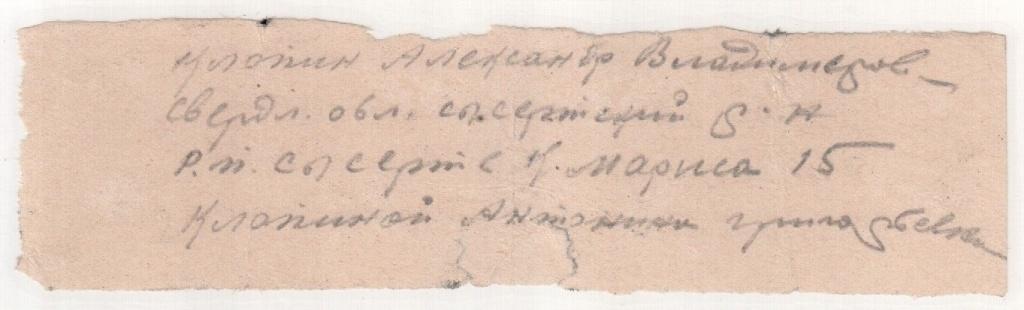 Клопин Александр Владимеров
Свердл. обл. сысертский р-н
Р.п. сысерть К. Маркса 15
Клопиной Антонина григорьевна